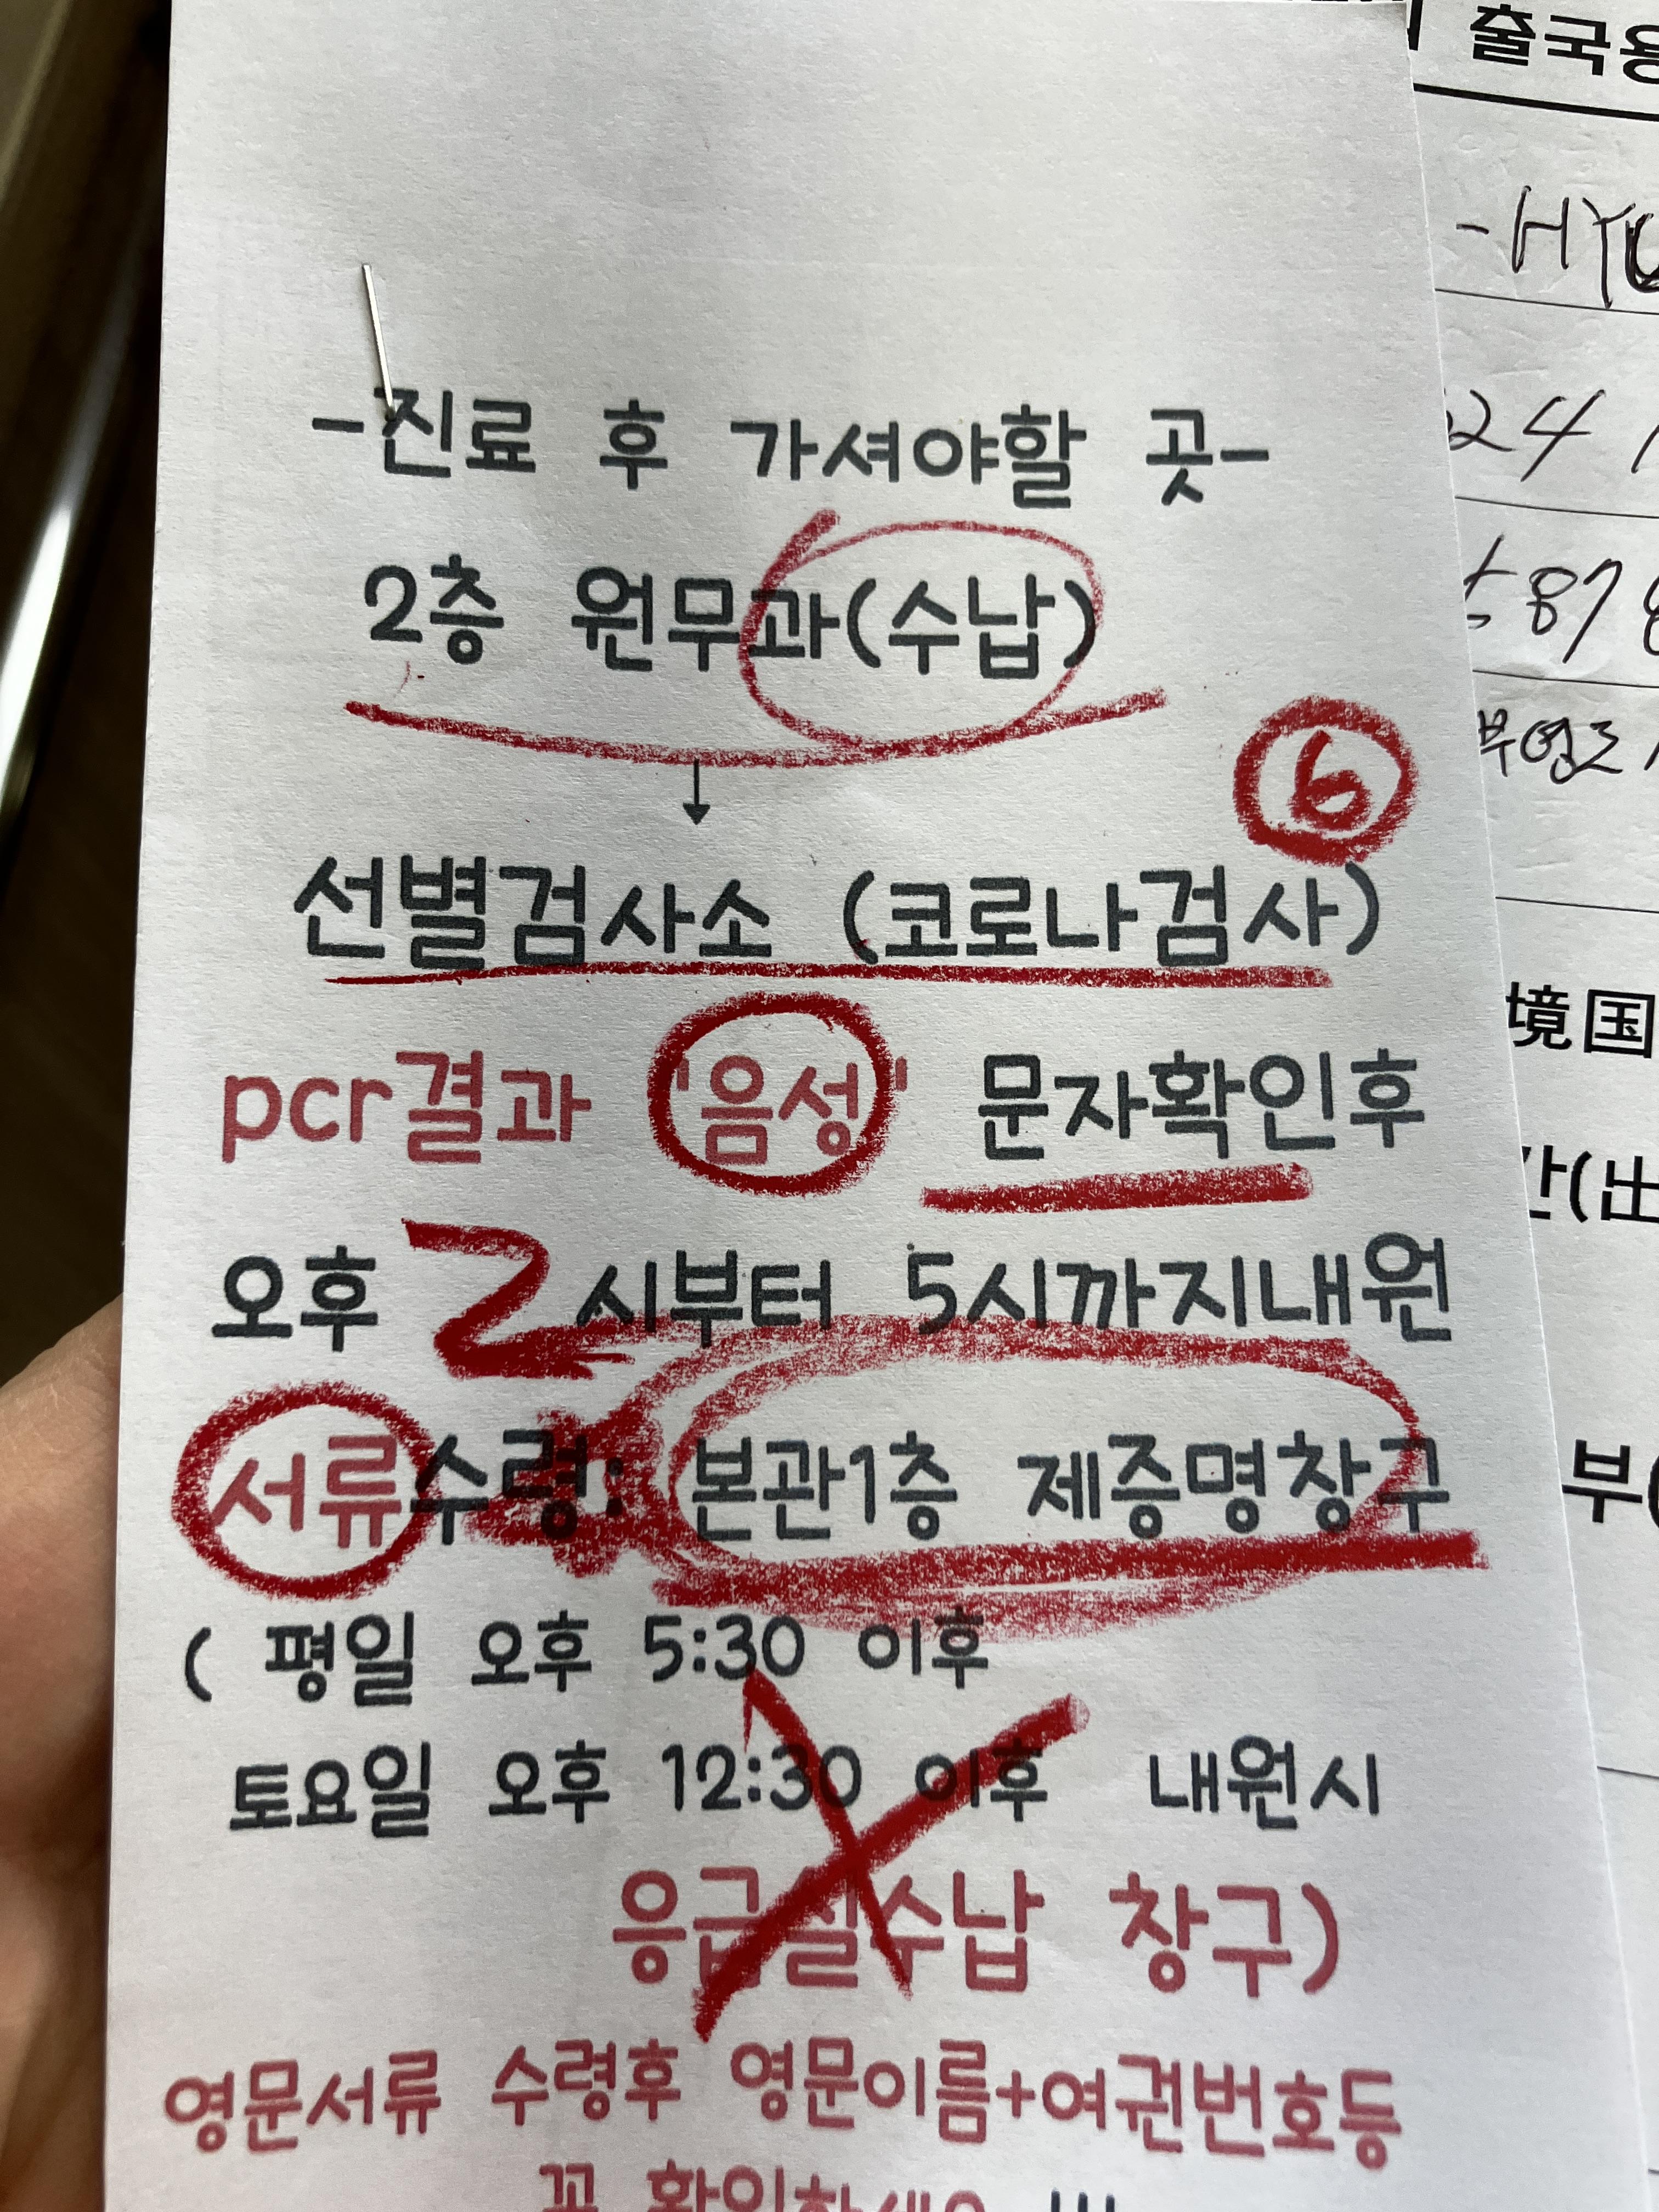 출국용
-HYU
-진료 후 가셔야할 곳-
24
2층 원무과(수납)
5878
↓
6
부영로
선별검사소 (코로나검사)
境国
pcr결과 '음성' 문자확인후
간(出
오후 2시부터 5시까지내원
서류수령: 본관1층 제증명창구
부(
( 평일 오후 5:30 이후
토요일 오후 12:30 이후 내원시
응급실수납 창구)
영문서류 수령후 영문이름+여권번호등
꼭 확인하세요 !!!